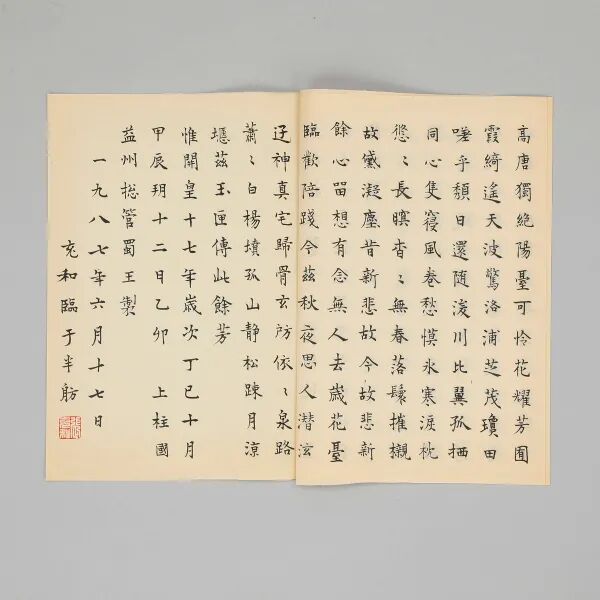 高唐獨絕陽臺可怜花耀芳囿
霞綺遙天波驚洛浦芝茂瓊田
嗟乎頹日還隨浚川比翼孤栖
同心隻寢風卷愁慔氷寒淚枕
悠〻長暝杳〻無春落鬟摧櫬
故黛凝塵昔新悲故今故悲新
餘心留想有念無人去歲花臺
臨歡陪踐今茲秋夜思人潛泫
迂神真宅歸骨玄房依〻泉路
蕭〻白楊墳孤山静松踈月凉
瘞茲玉匣傳此餘芳
惟開皇十七年歲次丁巳十月
甲辰朔十二日乙卯 上柱國
益州総管蜀王製
一九八七年六月十七日
充和臨于半舫